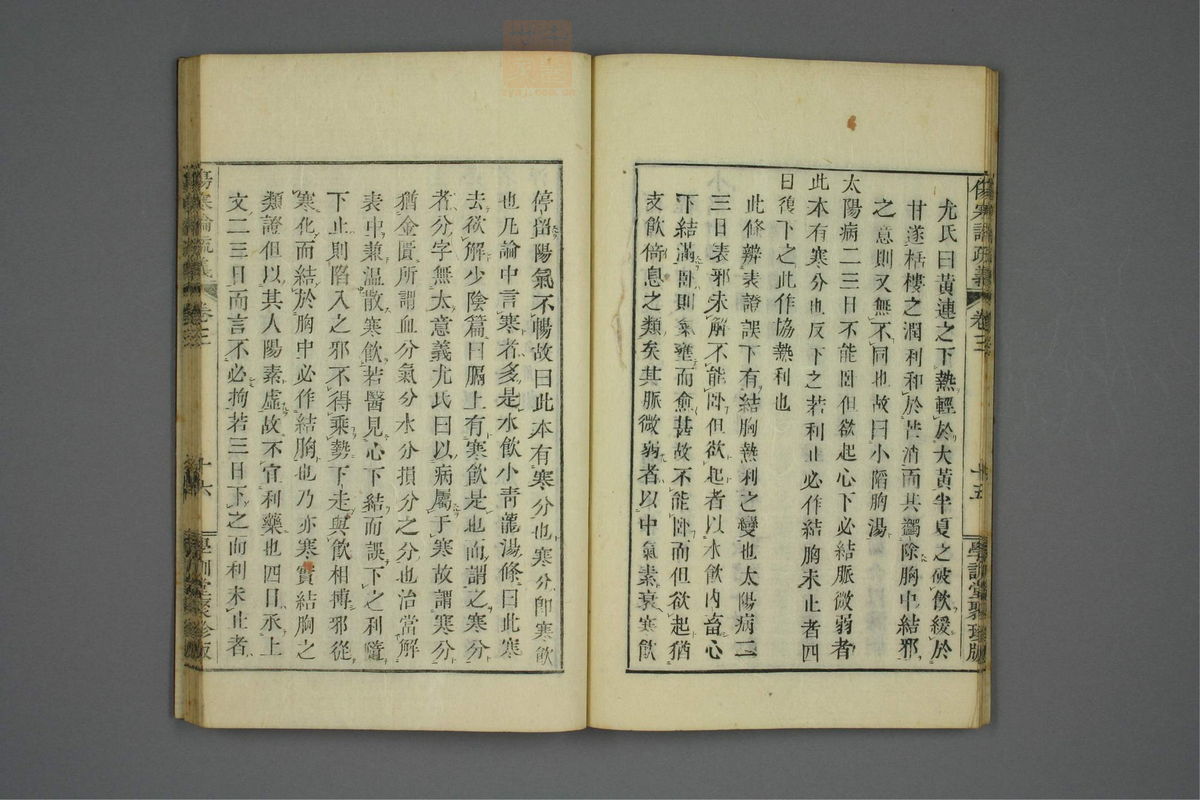 傷寒論疏義 卷三 十五 學訓堂聚珍版
尤氏曰黃連之下熱輕於大黃半夏之破飲緩於
甘遂栝樓之潤利和於芒消而其蠲除胸中結邪
之意則又無不同也故曰小陷胸湯
太陽病二三日不能臥但欲起心下必結脈微弱者
此本有寒分也反下之若利止必作結胸未止者四
日復下之此作協熱利也
此條辨表證誤下有結胸熱利之變也太陽病二
三日表邪未解不能臥但欲起者以水飲內畜心
下結滿臥則氣壅而愈甚故不能臥而但欲起猶
支飲倚息之類矣其脈微弱者以中氣素衰寒飲
停留陽氣不暢故曰此本有寒分也寒分卽寒飲
也凡論中言寒者多是水飲小青龍湯條曰此寒
去欲解少陰篇曰膈上有寒飲是也而謂之寒分
者分字無太意義尤氏曰以病屬于寒故謂寒分
猶金匱所謂血分氣分水分損分之分也治當解
表中兼溫散寒飲若醫見心下結而誤下之利隨
下止則陷入之邪不得乘勢下走與飲相搏邪從
寒化而結於胸中必作結胸也乃亦寒實結胸之
類證但以其人陽素虛故不宜利藥也四日承上
文二三日而言不必拘若三日下之而利未止者
傷寒論疏義 卷三 十六 學訓堂聚珍版